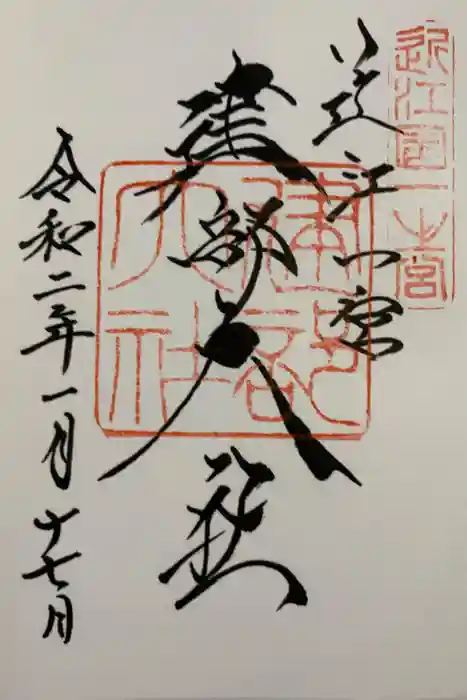 近江國一之宮
近江一宮
建部大社
建部
大社
令和二年一月十七日